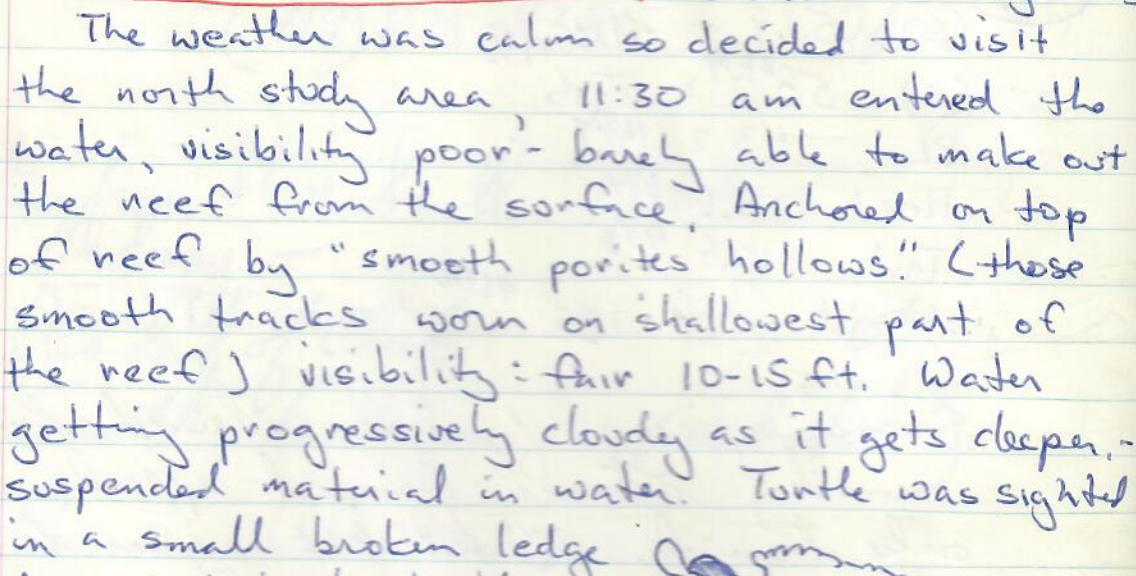 The weather was calm so decided to visit
the north study area, 11:30 am entered the
water, visibility poor - barely able to make out
the reef from the surface. Anchored on top
of reef by "smooth porites hollows." (those
smooth tracks worn on shallowest part of
the reef) visibility: fair 10-15 ft. Water
getting progressively cloudy as it gets deeper, -
suspended material in water. Turtle was sighted
in a small broken ledge